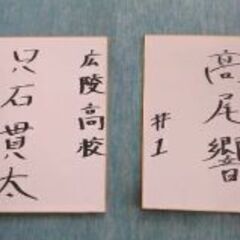 高尾響
#1
広陵高校
只石貫太